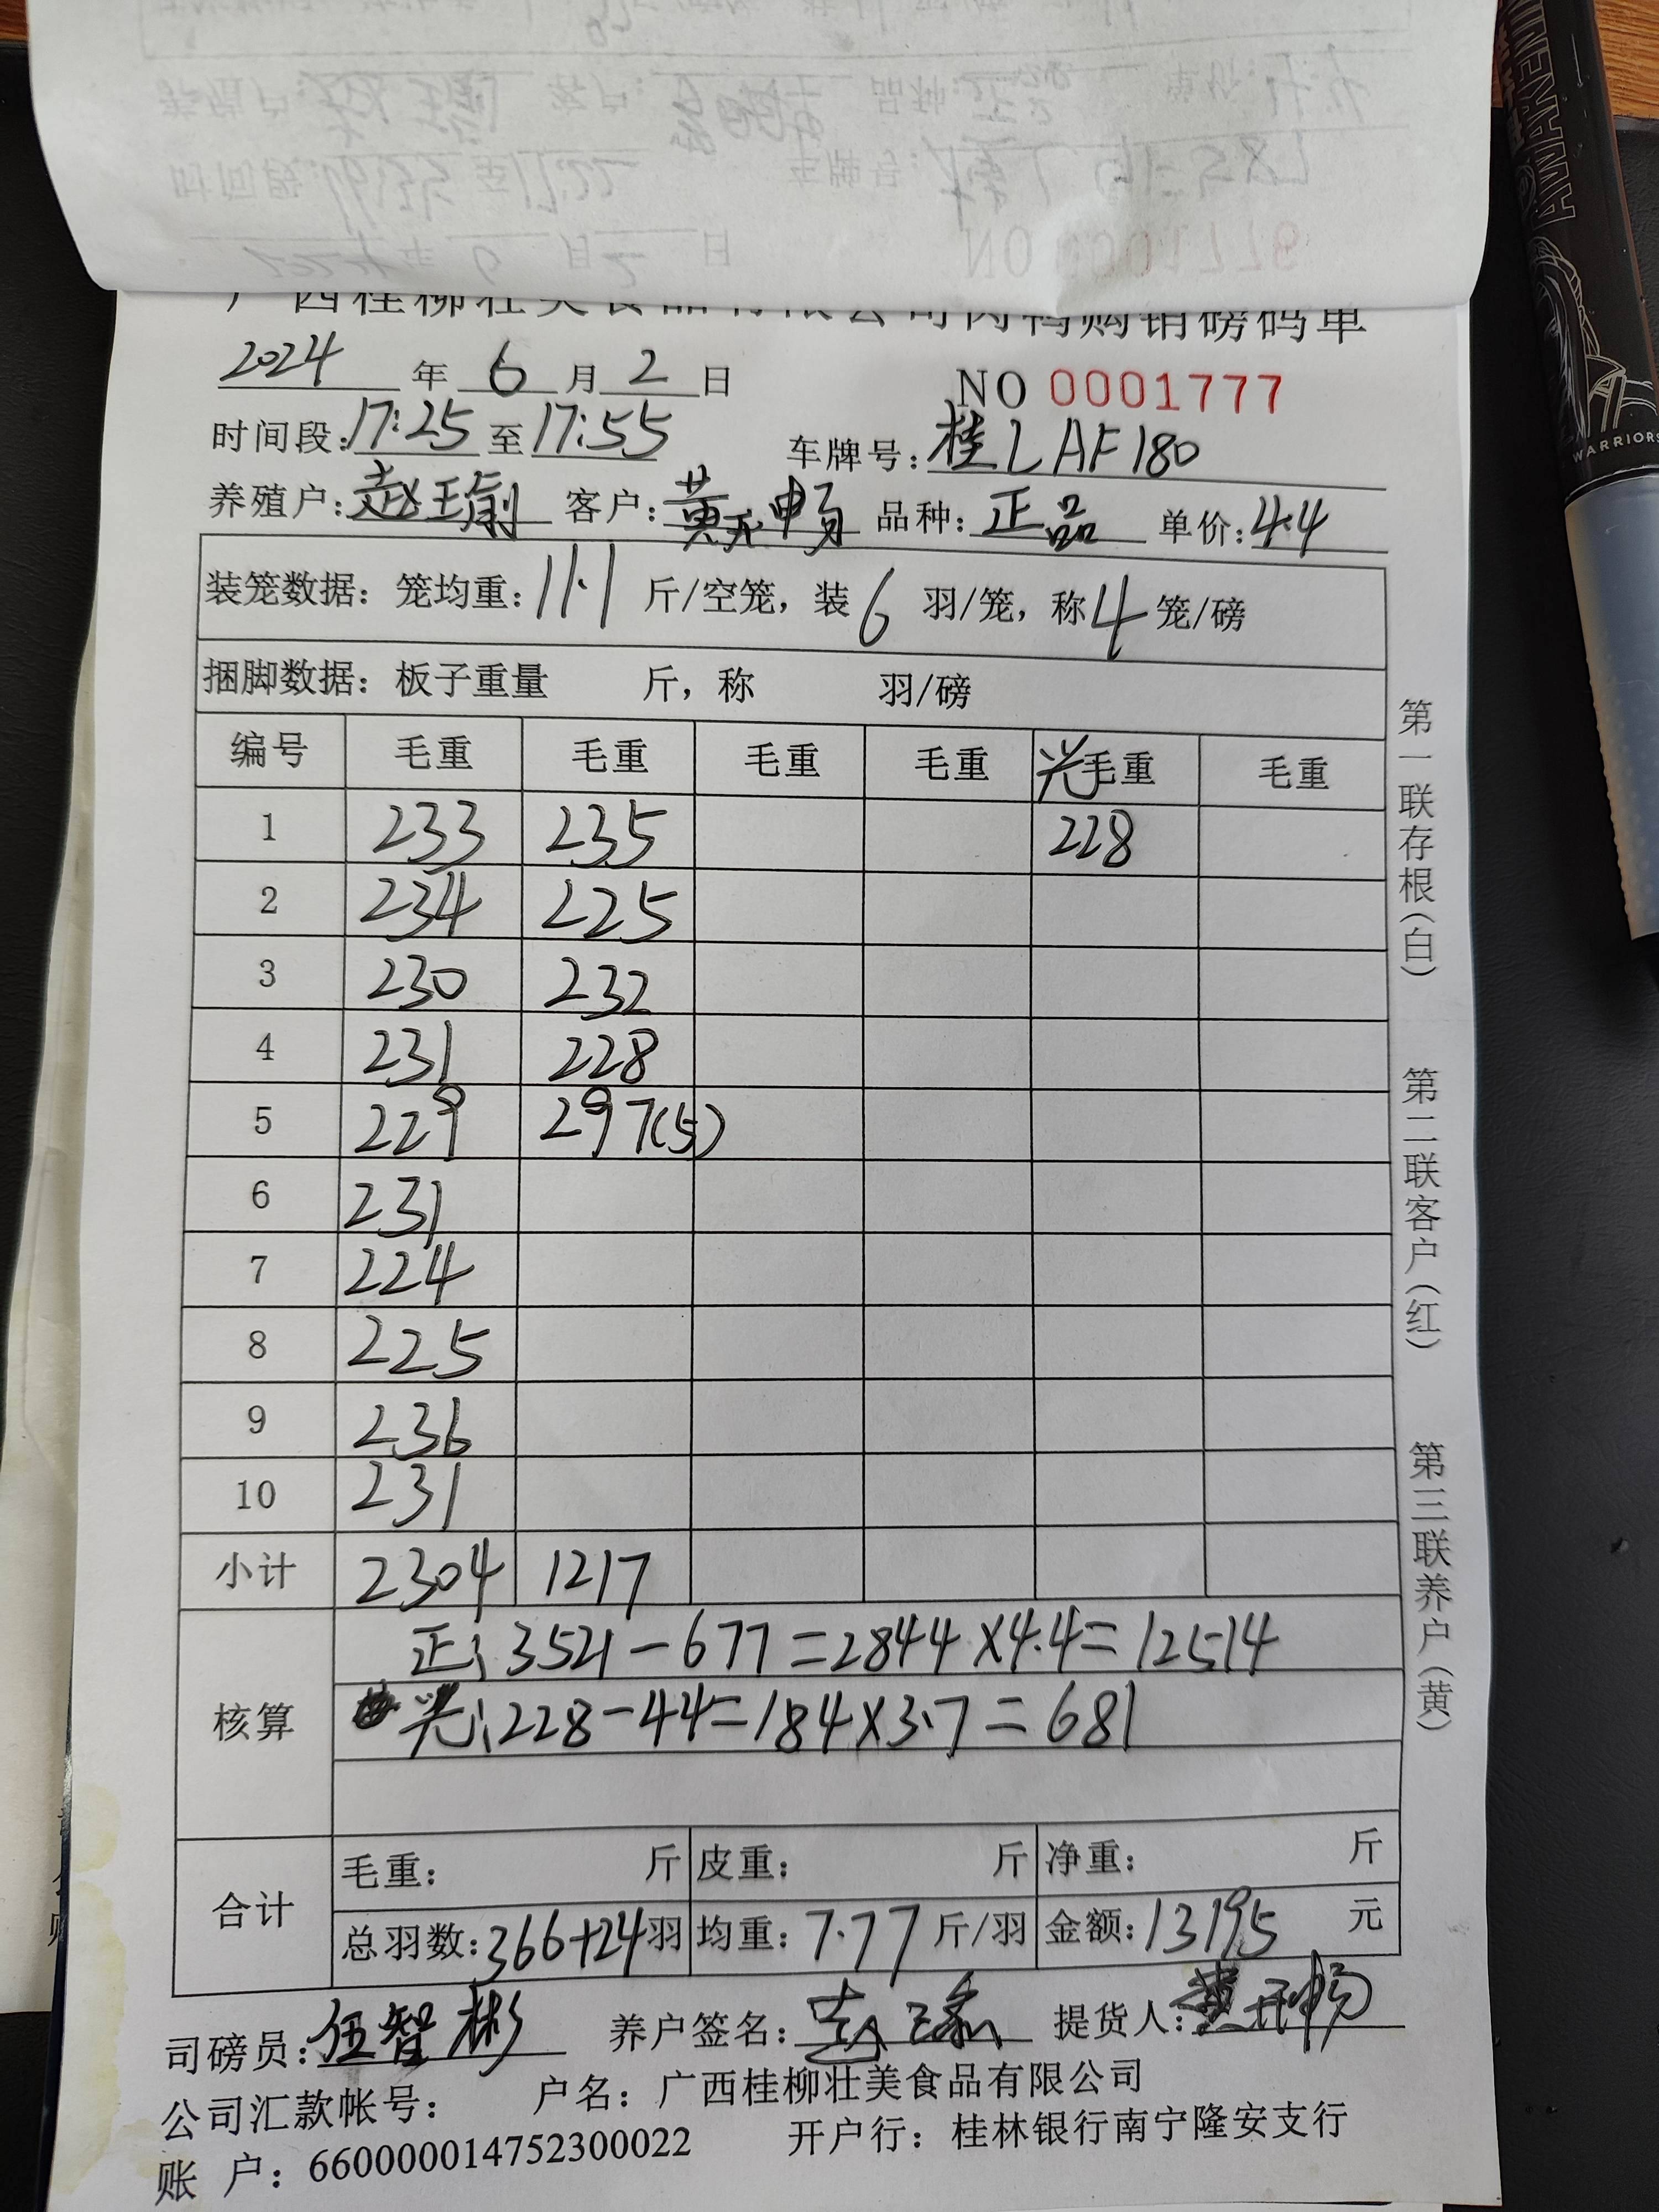 广西桂柳壮美食品有限公司肉鸭购销磅码单
2024 年 6 月 2 日 NO 0001777
时间段:17:25 至 17:55 车牌号:桂LAF180
养殖户: 客户: 品种:正品 单价:4.4
装笼数据:笼均重:11.1 斤/空笼,装 6 羽/笼,称 4 笼/磅
捆脚数据:板子重量 斤,称 羽/磅
编号 毛重 毛重 毛重 毛重 光毛重 毛重
1 233 235 228
2 234 225
3 230 232
4 231 228
5 229 297(5)
6 231
7 224
8 225
9 236
10 231
小计 2304 1217
核算
正:3521-677=2844×4.4=12514
光:228-44=184×3.7=681
合计
毛重: 斤 皮重: 斤 净重: 斤
总羽数:366+24羽 均重:7.77斤/羽 金额:13195 元
司磅员:伍智彬 养户签名: 提货人:
公司汇款帐号: 户名:广西桂柳壮美食品有限公司
账 户:660000014752300022 开户行:桂林银行南宁隆安支行
第一联存根(白) 第二联客户(红) 第三联养户(黄)
AWAKENING
WARRIORS